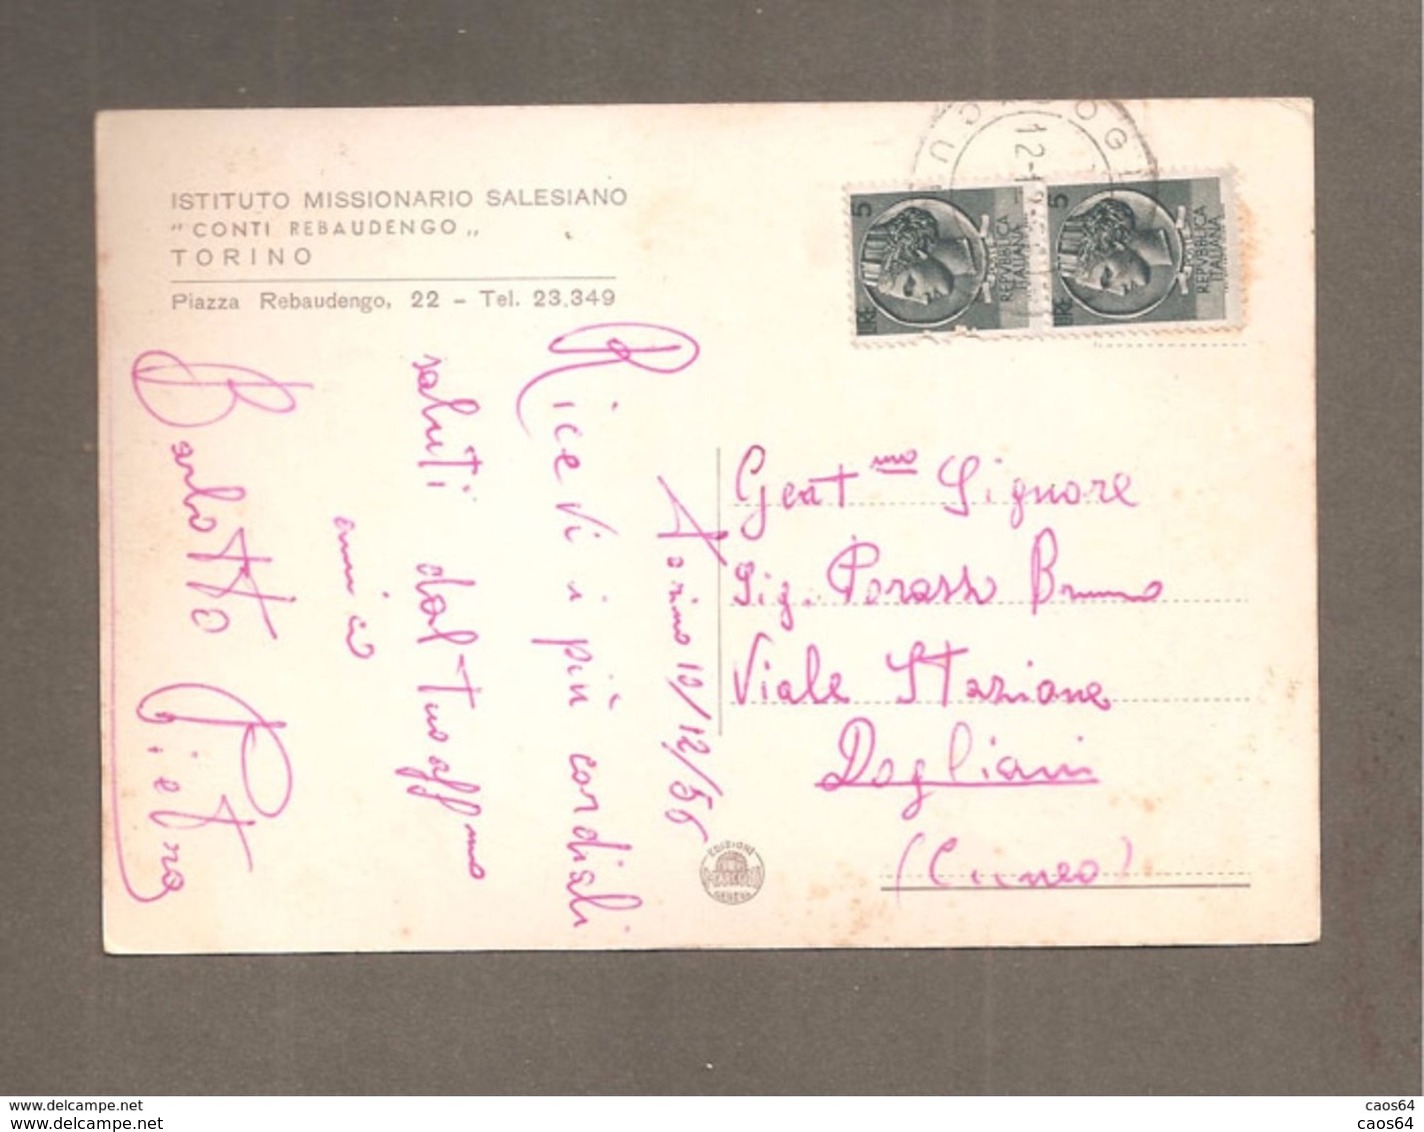 ISTITUTO MISSIONARIO SALESIANO
"CONTI REBAUDENGO"
TORINO
Piazza Rebaudengo, 22 - Tel. 23.349
Torino 10/12/55
Ricevi i più cordiali
saluti dal tuo affmo
amico
Barlotto Pietro
Gent mo Signore
Sig. Porassi Bruno
Viale Stazione
Dogliani
(Cuneo)
5
LIRE
REPVBBLICA
ITALIANA
5
LIRE
REPVBBLICA
ITALIANA
EDIZIONI
GENOVA
www.delcampe.net
www.delcampe.net
caos64
caos64